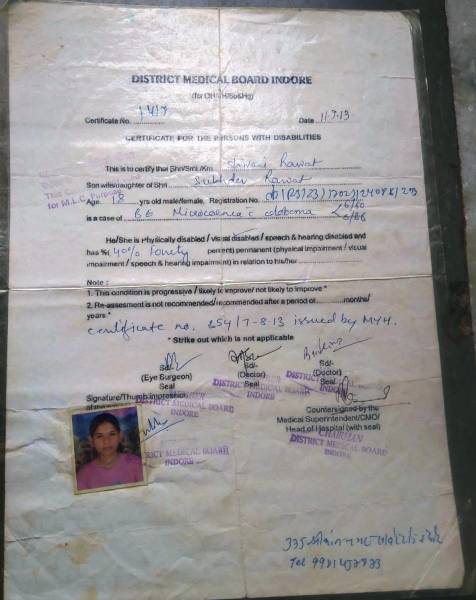 DISTRICT MEDICAL BOARD INDORE
Certificate No. 1417 Date 11.7.13
CERTIFICATE FOR THE PERSONS WITH DISABILITIES
This is to certify that Shri/Smt./Km. Rawat
Son wife/daughter of Shri Sukhdev Rawat
Age. 18 yrs old male/female. Registration No.
is a case of BE Microcornea c coloboma 6/60
He/She is Physically disabled / visual disabled / speech & hearing disabled and
has %( 40% percent) permanent (physical impairment / visual
impairment / speech & hearing impairment) in relation to his/her
Note :
1. This condition is progressive / likely to improve/ not likely to improve *
2. Re-assment is not recommended/recommended after a period of months/
years.*
certificate no. 254/7-8-13 issued by MYH.
* Strike out which is not applicable
Sd/- Sd/- Sd/-
(Eye Surgeon) (Doctor) (Doctor)
Seal Seal Seal
DISTRICT MEDICAL BOARD
INDORE
Signature/Thumb impression
DISTRICT MEDICAL BOARD
INDORE
Countersigned by the
Medical Superintendent/CMO/
Head of Hospital (with seal)
CHAIRMAN
DISTRICT MEDICAL BOARD
INDORE
DISTRICT MEDICAL BOARD
INDORE
335
Tel